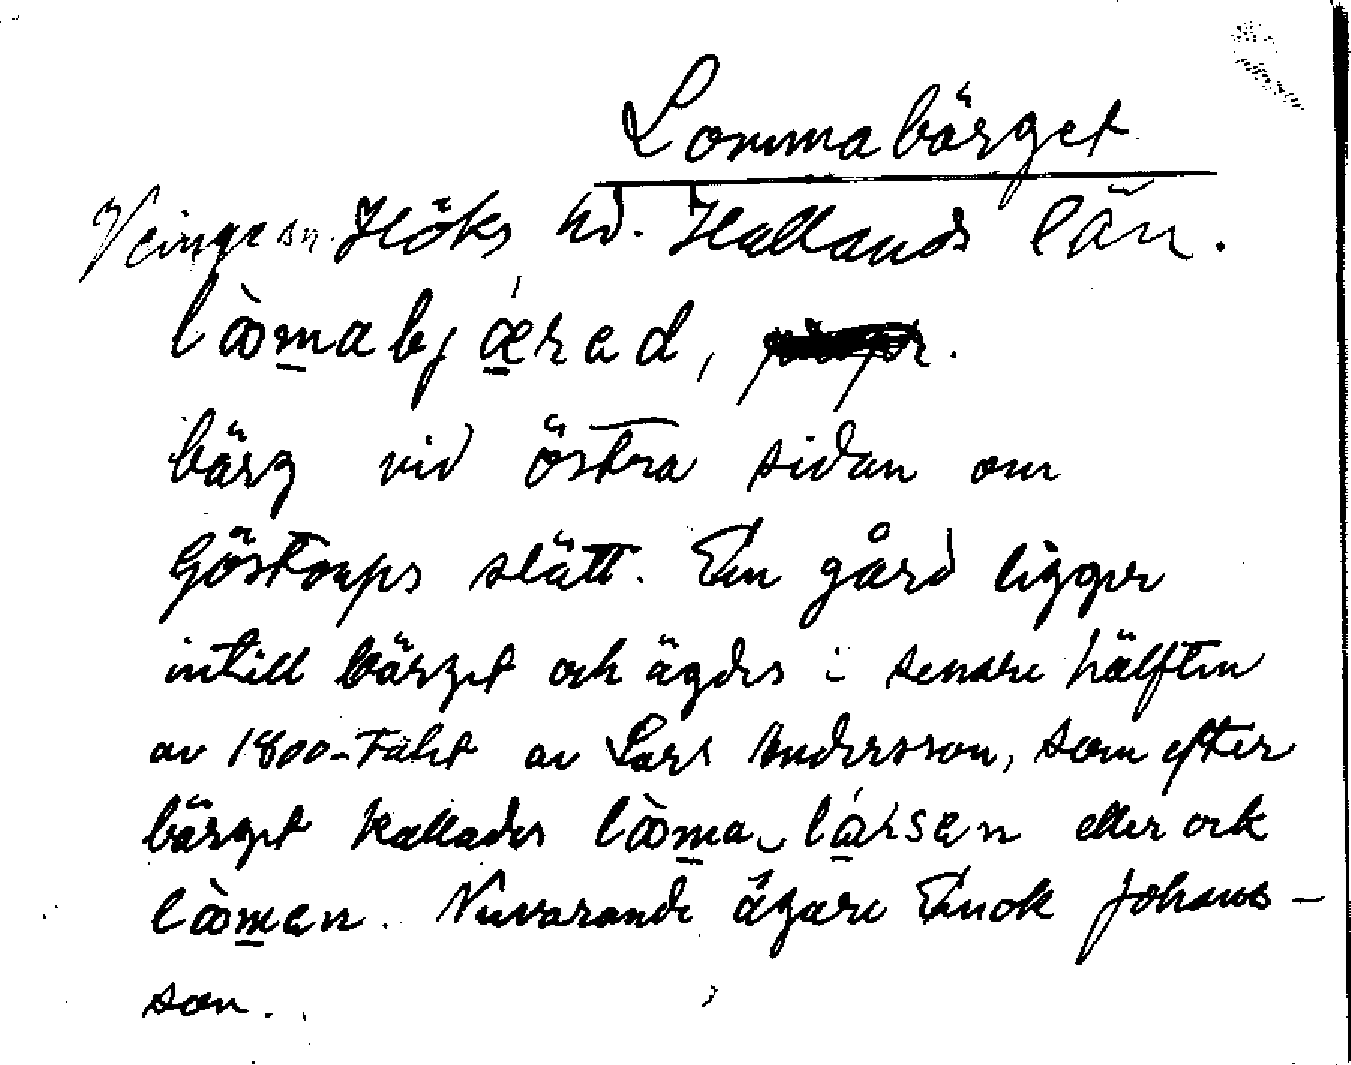 Lommabärget
Veinge sn. Höks hd. Hallands län.
lòm̲abjǽ̲rəd,
bärg vid östra sidan om
Göstorps slätt. En gård ligger
intill bärget och ägdes i senare hälften
av 1800-talet av Lars Andersson, som efter
bärget kallades lòm̲a-lá̲rsən eller ock
lòm̲ən. Nuvarande ägare Enok Johans-
son.